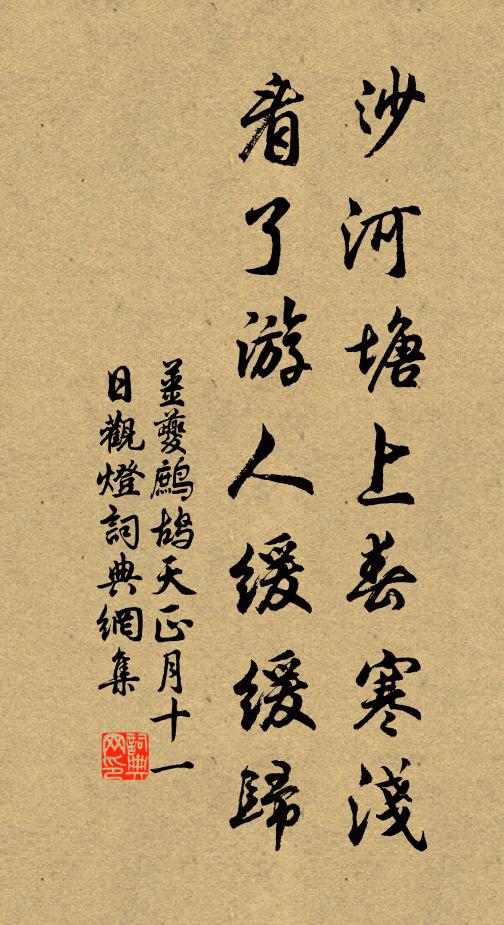 沙河塘上春寒淺
看了游人緩緩歸
姜夔鷓鴣天正月十一
日觀燈詞典網集
詞典
网印